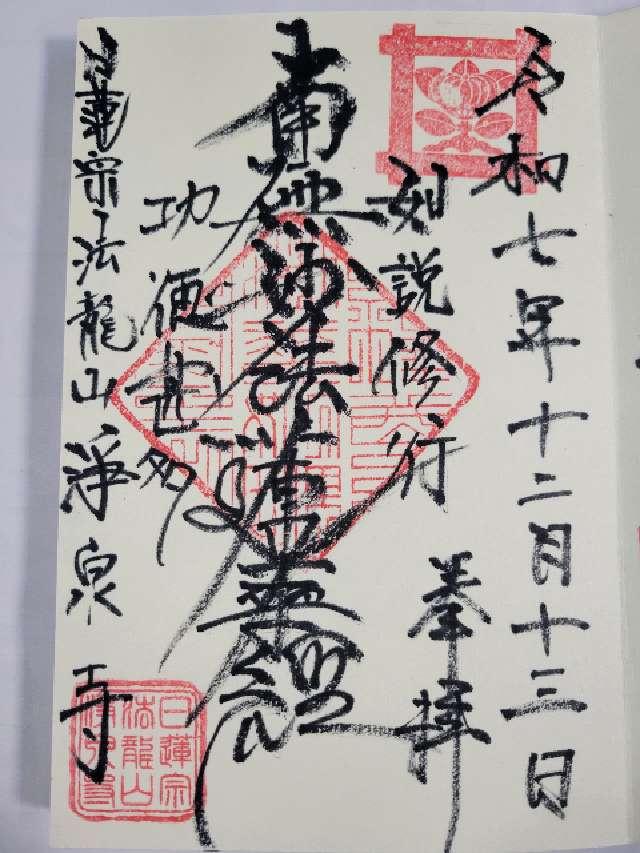 令和七年十二月十三日
奉拝
如説修行
南無妙法蓮華經
功徳甚多
日蓮宗法龍山淨泉寺
日蓮宗
法龍山
淨泉寺